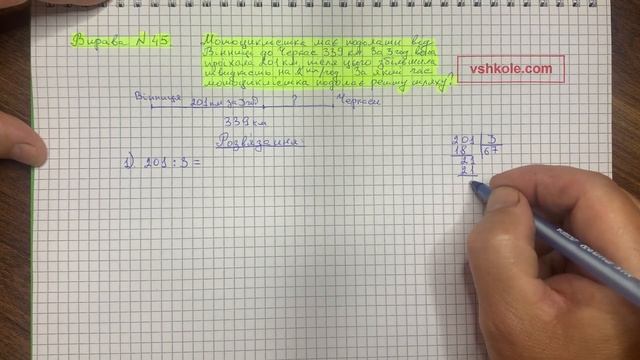 Вправа №45
Мотоциклістка має подолати від
Вінниці до Черкас 339 км. За 3 год вона
проїхала 201 км після цього збільшила
швидкість на 2 км/год. За який час
мотоциклістка подолає решту шляху?
vshkole.com
Вінниця 201 км за 3 год ? Черкаси
339 км
Розв'язання
1) 201 : 3 =
201 3
18 67
21
21